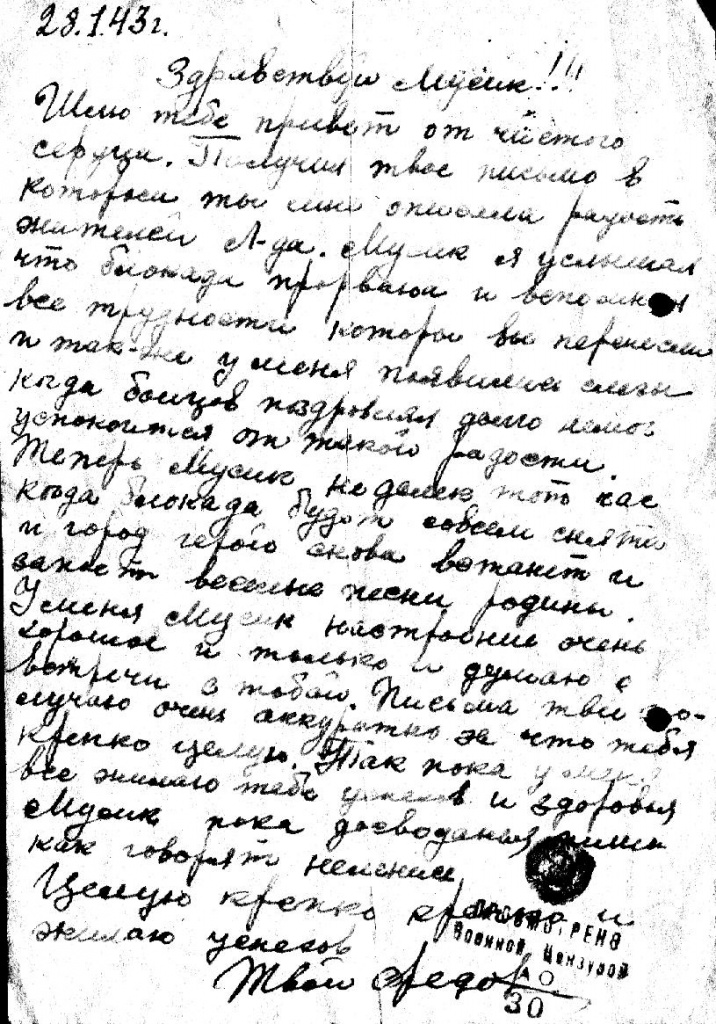 28.1.43г.
Здравствуй Мусик!!!
Шлю тебе привет от чистого
сердца. Получил твое письмо в
котором ты мне описала радость
жителей Л-да. Мусик я услышал
что блокада прорвана и вспомнил
все трудности которы вы перенесли
и так-же у меня появились слезы
когда бойцов поздровлял долго немог
успокоится от такой радости.
Теперь Мусик недалек тот час
когда блокада будет совсем снята
и город герой снова встанет и
запоет веселые песни родины.
У меня Мусик настроение очень
хорошое и только и думаю о
встречи с тобой. Письма твои по-
лучаю очень аккуратно за что тебя
крепко целую. Так пока у меня
все желаю тебе успехов и здоровья
Мусик пока досводания пиши
как говорят неленись
Целую крепко крепко и
желаю успехов
Твой Федор
ПРОСМОТРЕНО
Военной Цензурой
30